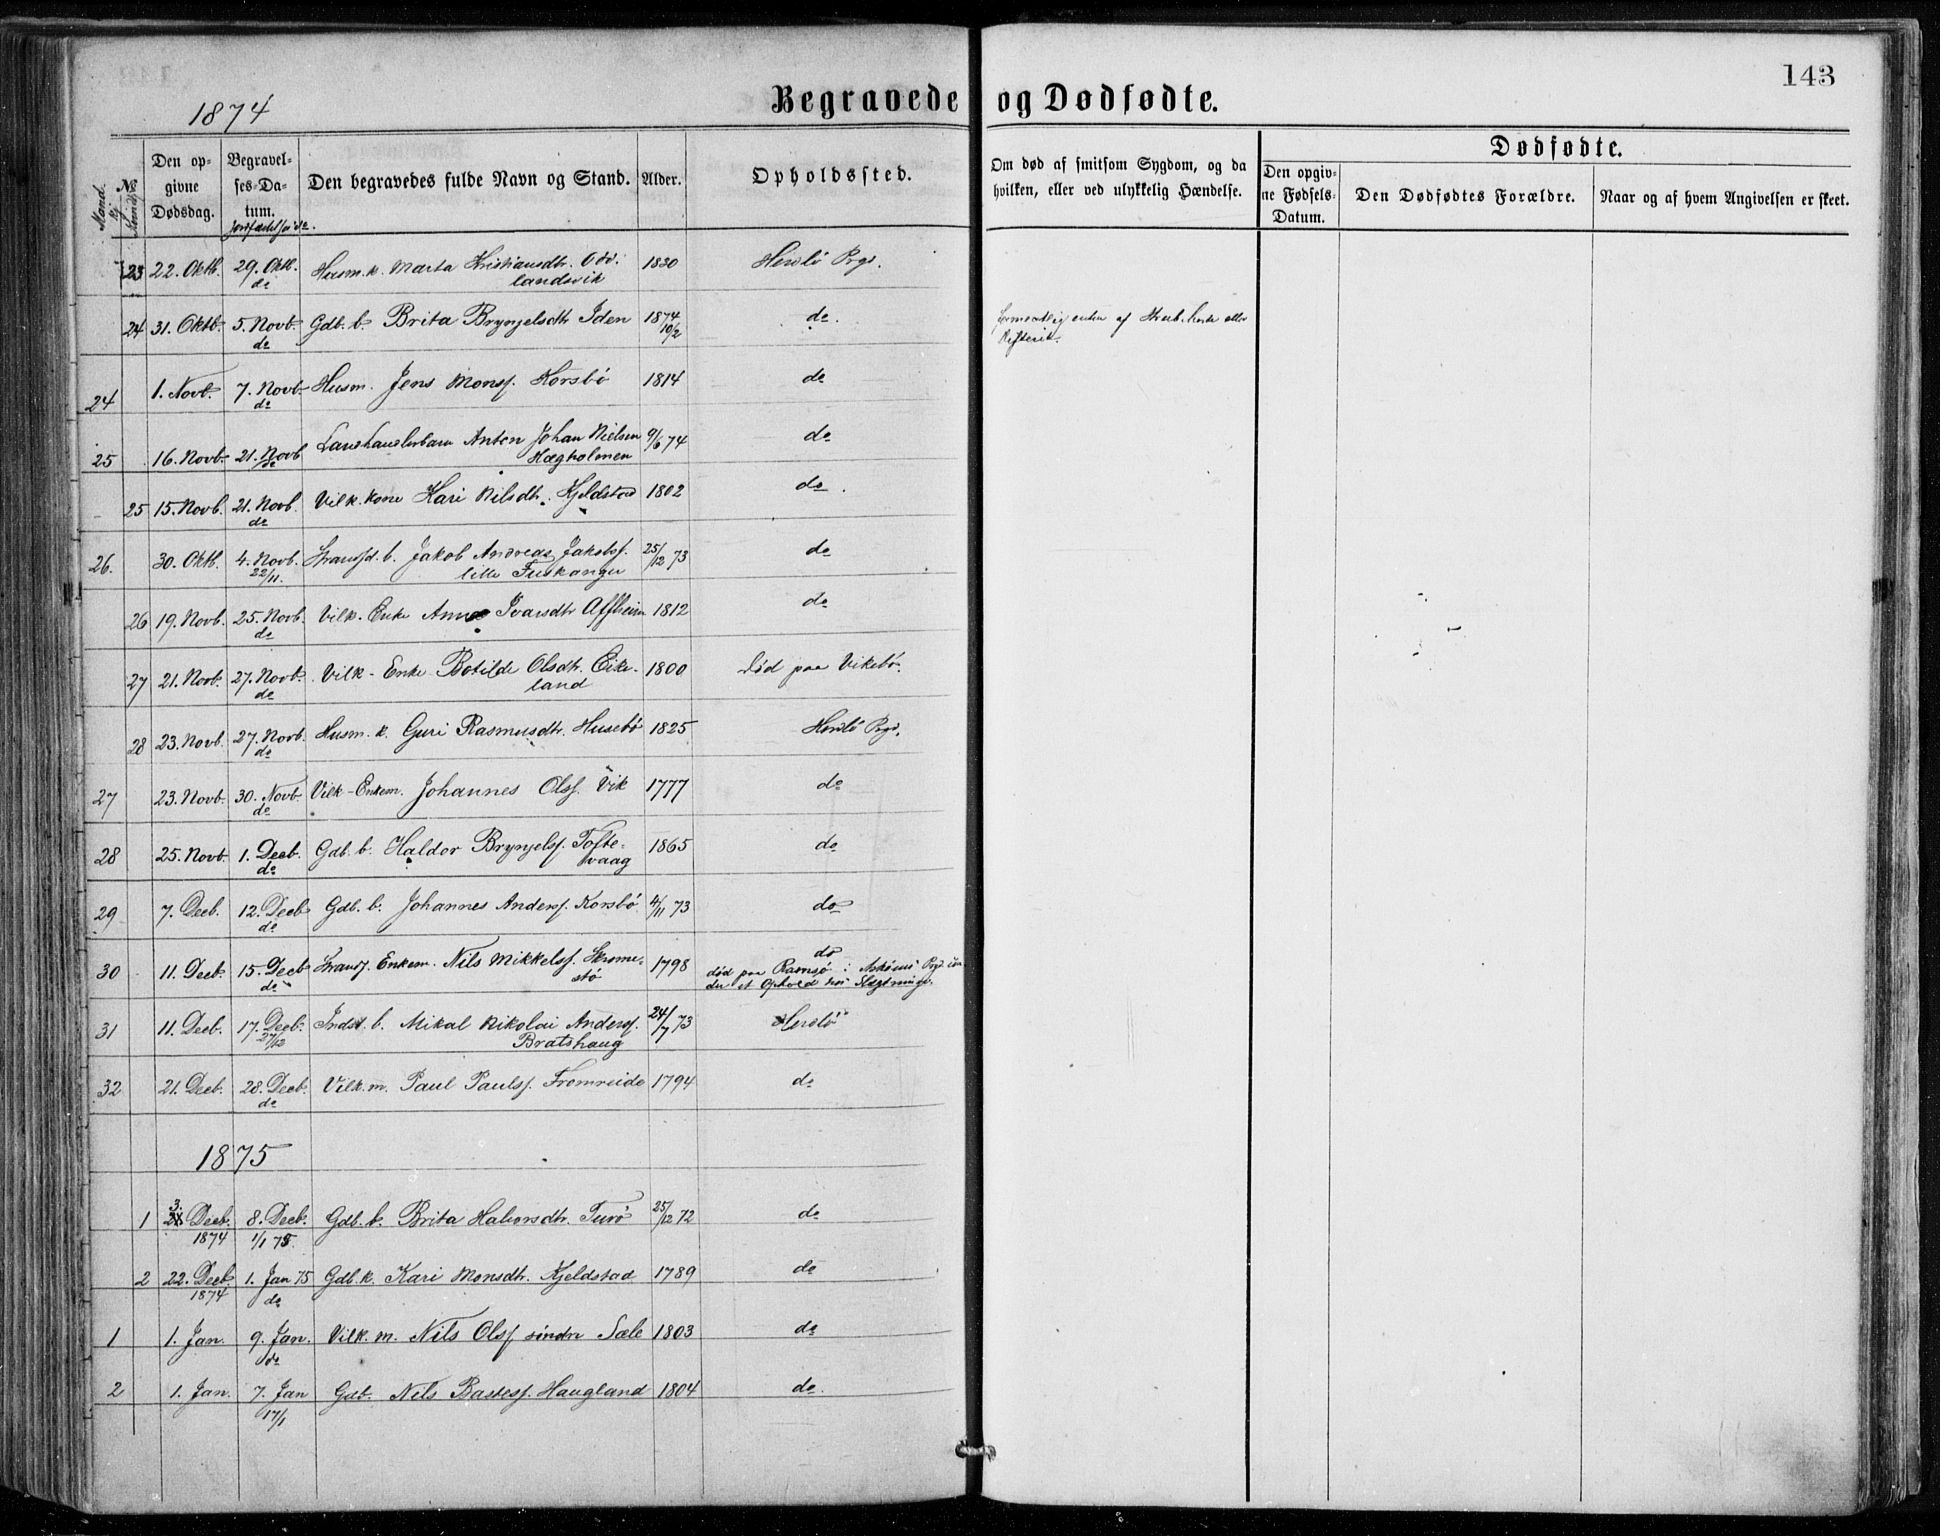 143
Begravede og Dødfødte.
1874
Mand. Kvindk. №
Den opgivne Dødsdag.
Begravelses-Datum.
Jordfæstelsesd.
Den begravedes fulde Navn og Stand.
Alder.
Opholdssted.
Om død af smitsom Sygdom, og da
hvilken, eller ved ulykkelig Hændelse.
Dødfødte.
Den opgivne Fødsels-Datum.
Den Dødfødtes Forældre.
Naar og af hvem Angivelsen er skeet.
23 22. Oktb. 29. Oktb. Husm. k. Marta Kristiansdtr. 1830 Herdlö Prgd.
do landsvik
24 31. Oktb. 5. Novb. Gdb. b. Brita Brynjelsdtr Iden 1874 do. enten af Strubehoste eller
do 10/2
24 1. Novb. 7. Novb. Husm. Jens Monss. Korsbö 1814 do
do
25 16. Novb. 21. Novb Landhandlerbarn Anton Johan Nielsen 9/6 74 do
do Hægholmen
25 15. Novb. 21. Novb. Vilk. kone Kari Nilsdtr. Kjeldstad 1802 do.
do
26. 30. Oktb. 4. Novb. b. Jakob Andreas Jakobss. 25/12 73 do
22/11. lille Fuskanger
26 19. Novb. 25. Novb. Vilk. Enke Anna Ivarsdtr 1812 do
do
27 21. Novb. 27. Novb. Vilk-Enke Botilde Olsdtr. Eike- 1800 död paa Vikebö.
do land
28 23. Novb. 27. Novb. Husm. k. Guri Rasmusdtr. Husebö 1825 Herdlö Prgd.
do
27 23. Novb. 30. Novb. Vilk-Enkem. Johannes Olss. Vik 1777 do
do
28 25. Novb. 1. Decb. Gdb. b. Haldor Brynjelss. Tofte- 1865 do
do vaag
29 7. Decb. 12. Decb Gdb. b. Johannes Anderss. Korsbö 4/11 73 do
do
30 11. Decb. 15. Decb Enkem. Nils Mikkelss. Skrome- 1798 do
do stö död paa Ramsö i Asköens Prgd.
et Ophold hos Slægtninge.
31 11. Decb. 17. Decb. Inds. b. Mikal Nikolai Anderss. 24/7 73 Herdlö
27/12 Bratshaug
32 21. Decb. 28. Decb. Vilk. m. Paul Paulss. Fromreide 1794 do
do
1875
1 3. Decb. 8. Decb. Gdb. b. Brita Halvorsdtr. Turö 25/12 72 do
1874 1/1 75.
2 22. Decb. 1. Jan 75 Gdb. k. Kari Monsdtr. Kjeldstad 1789 do
1874 do
1 1. Jan. 9. Jan. Vilk. m. Nils Olss söndre Sæle 1803 do
do
2 1. Jan. 7. Jan Gdb. Nils Bastess. Haugland 1804 do.
17/1